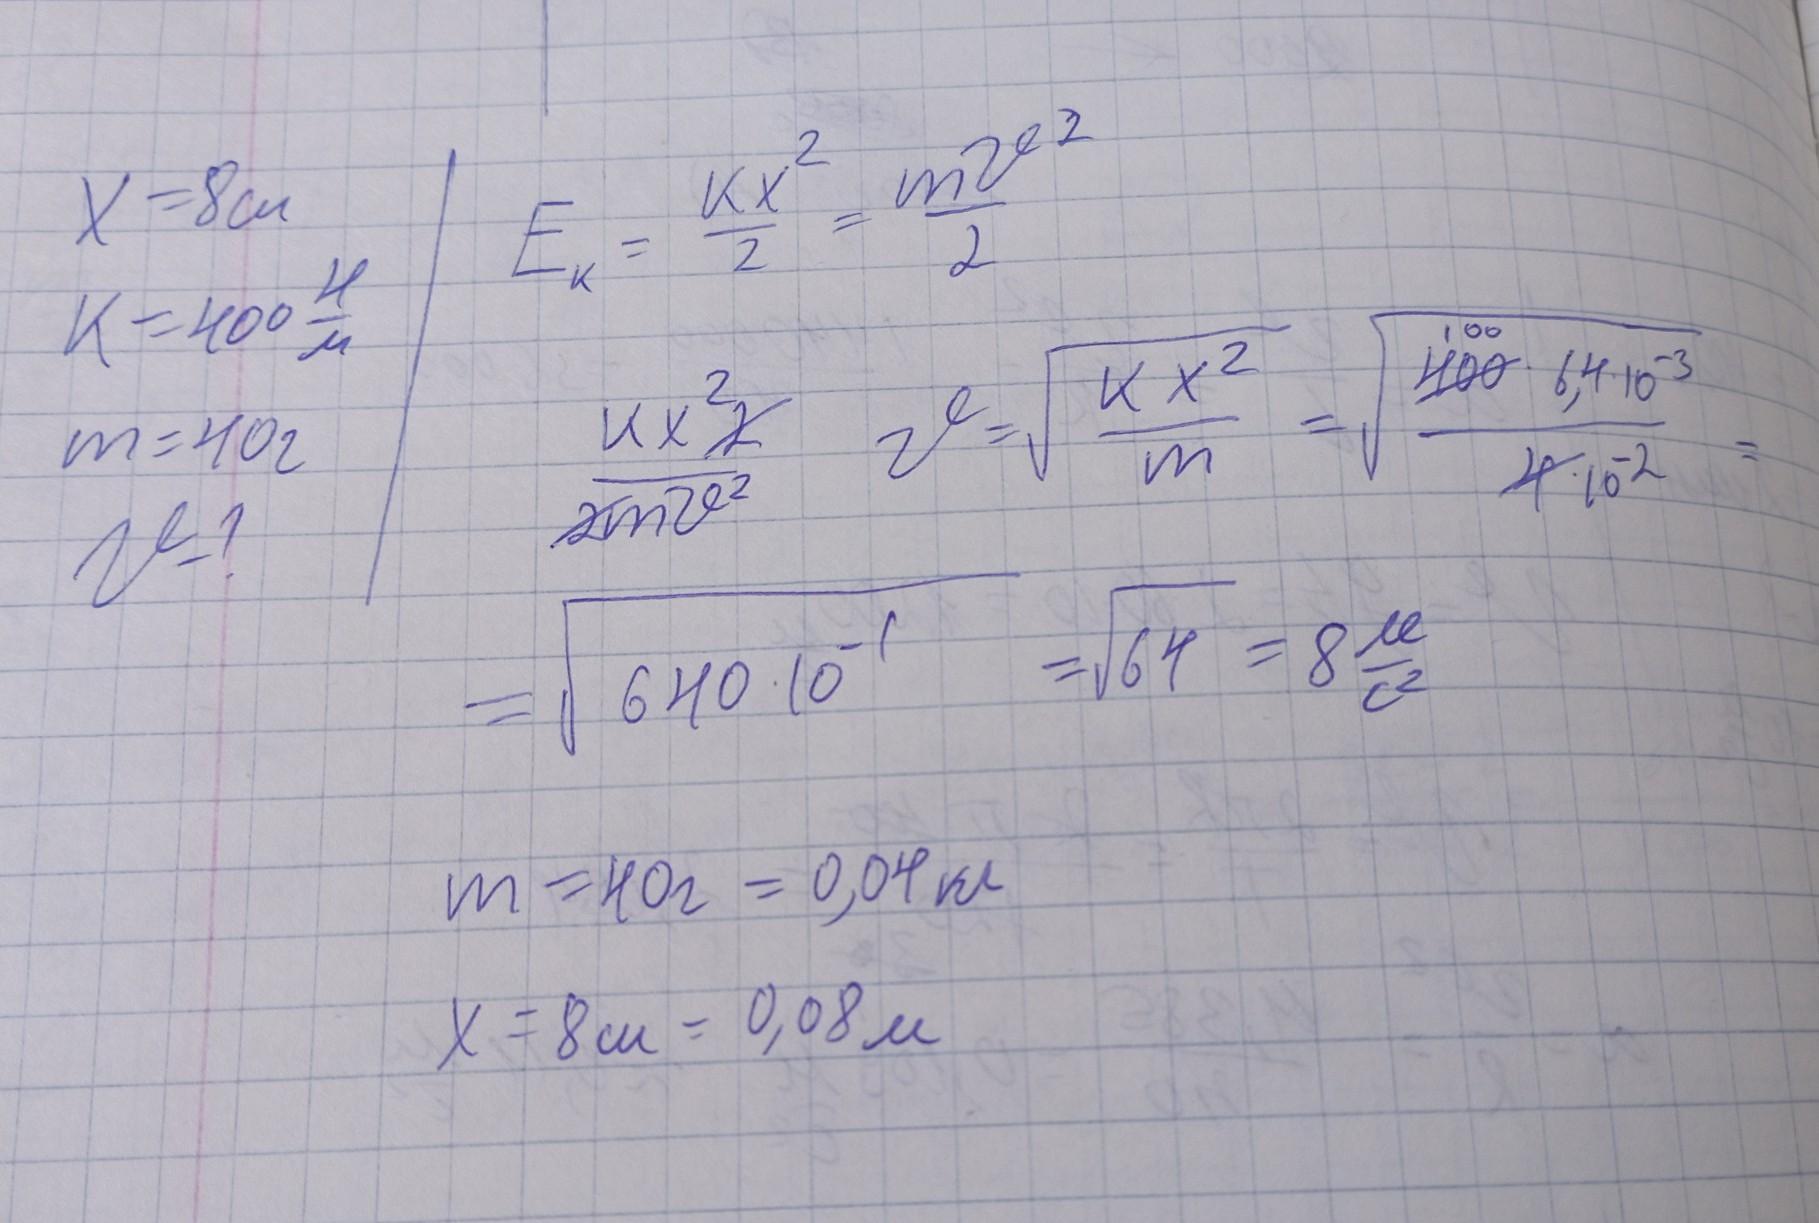 x = 8 см
K = 400 Н/м
m = 40 г
v - ?
Eк = Kx²/2 = mv²/2
Kx²2/2mv² v = √(Kx²/m) = √(100 400 · 6,4·10⁻³/4·10⁻²) =
= √(640·10⁻¹) = √64 = 8 м/с²
m = 40 г = 0,04 кг
x = 8 см = 0,08 м